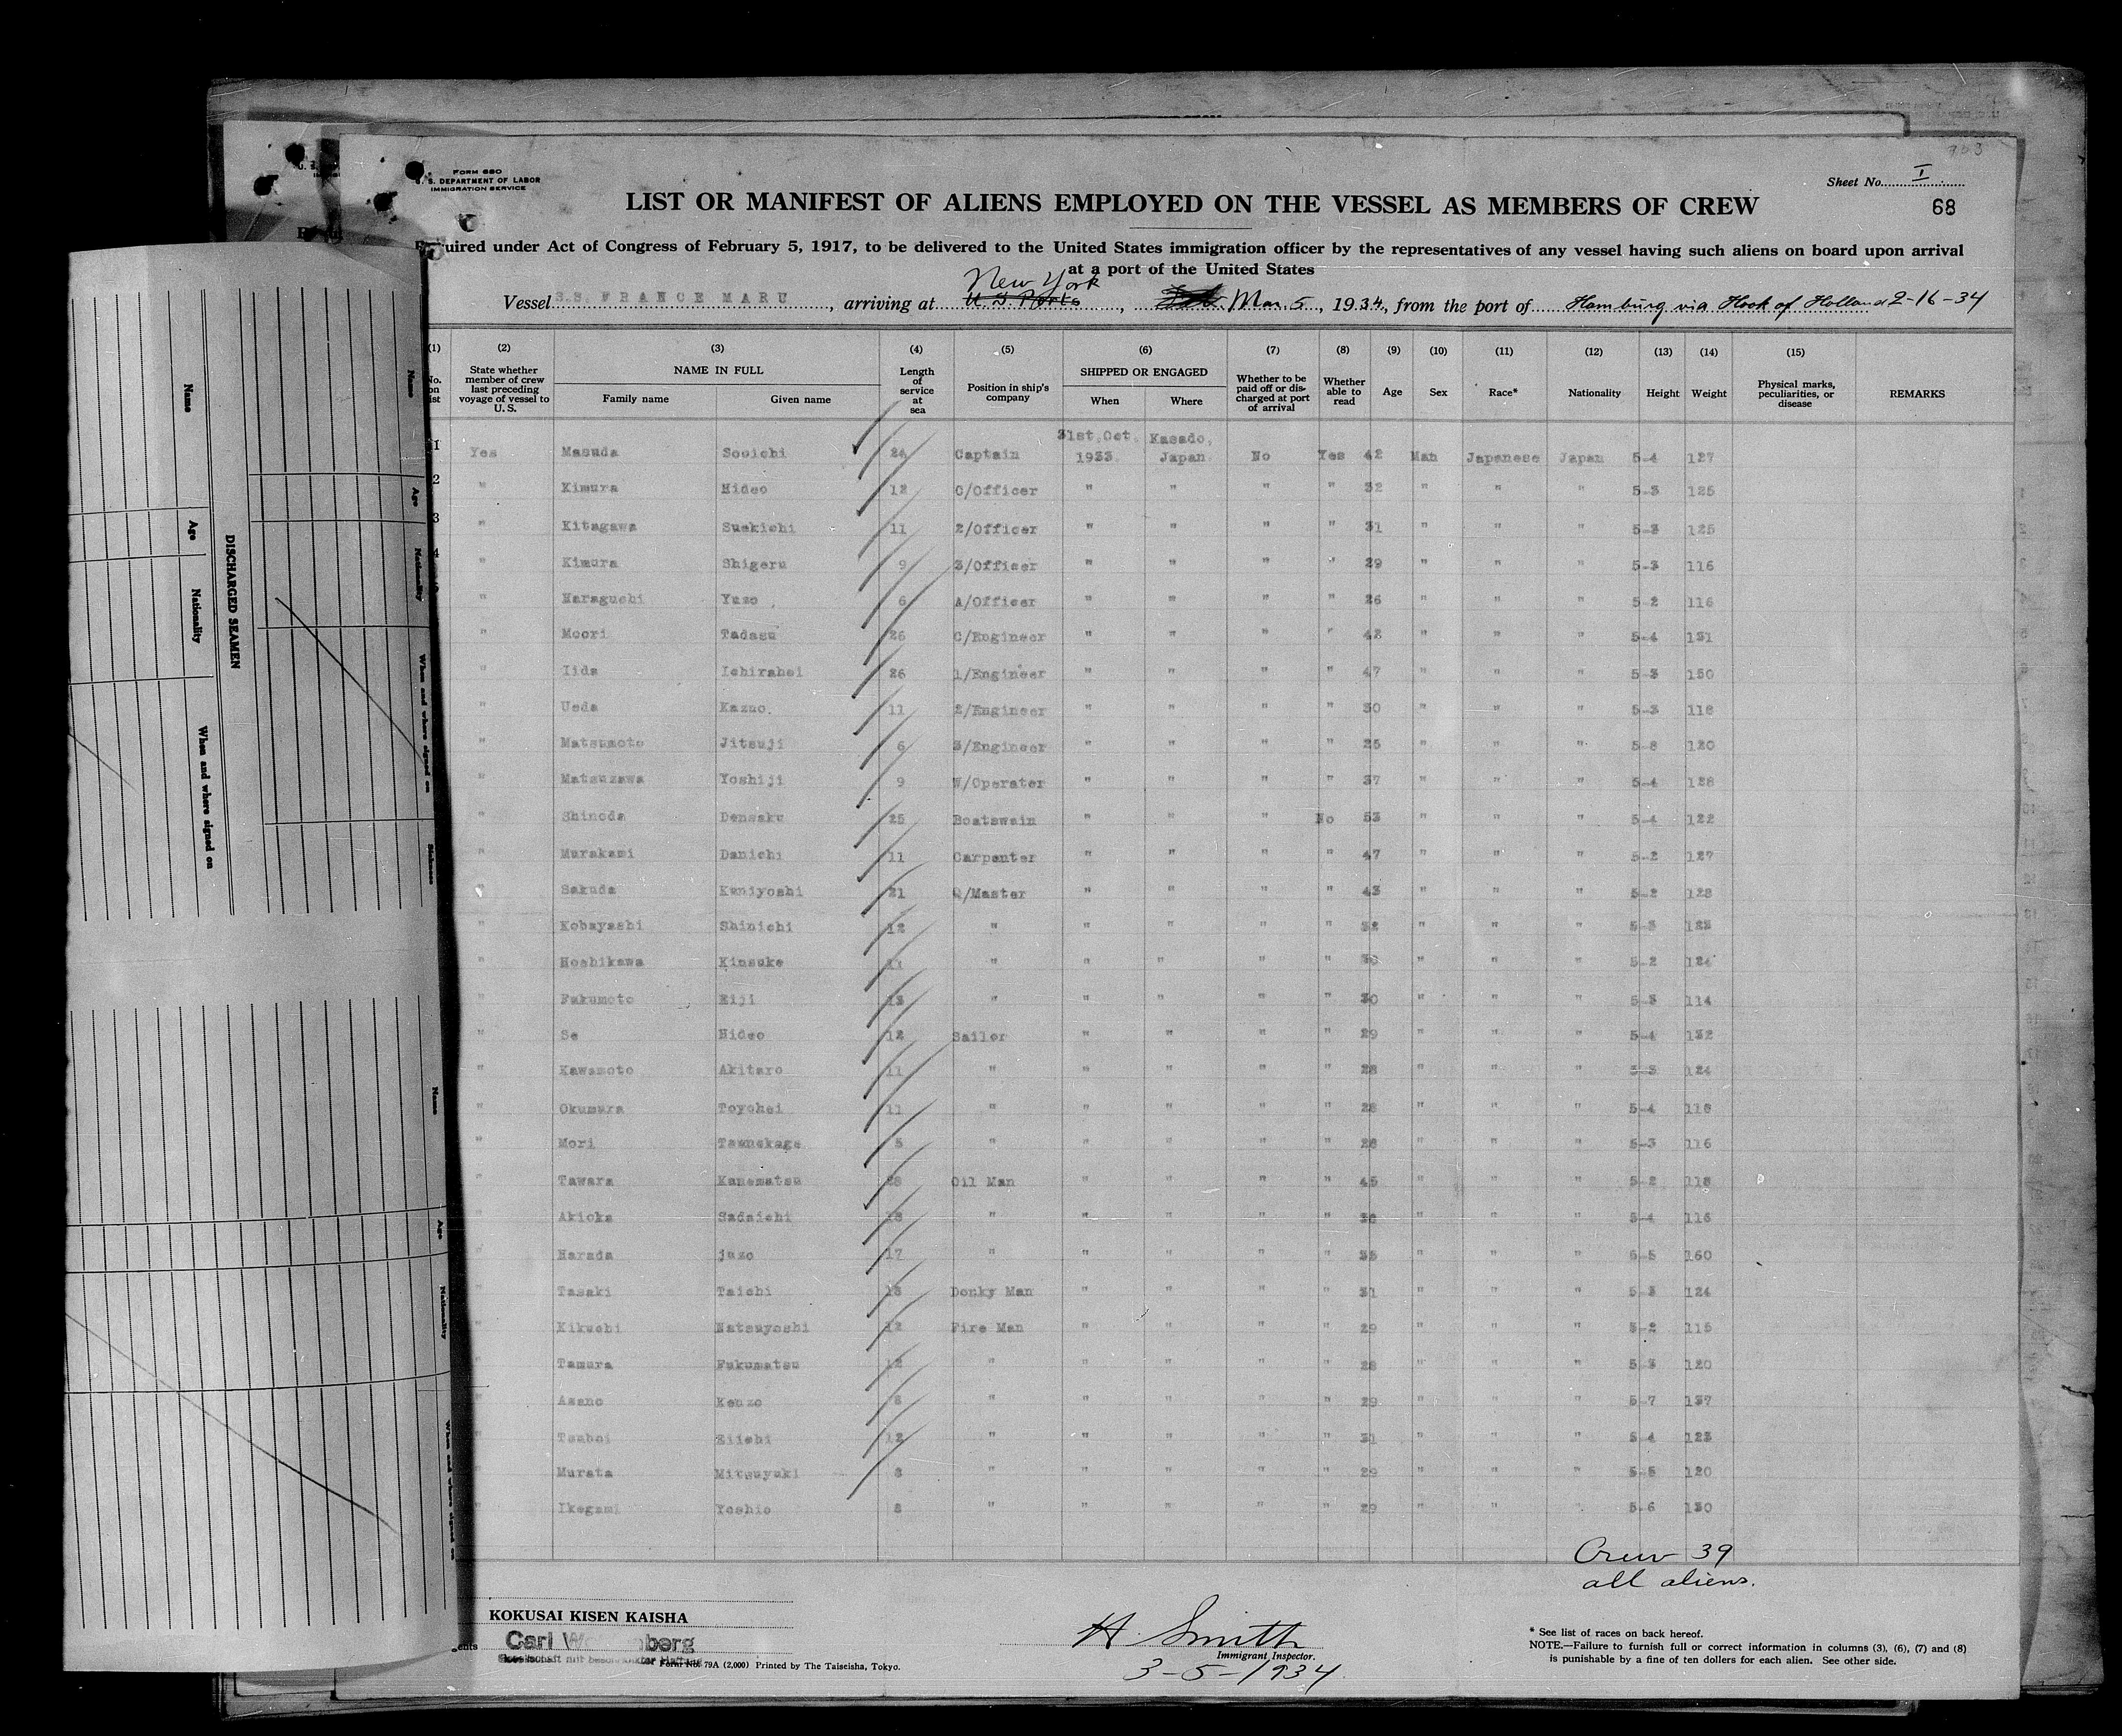 703
FORM 680
U. S. DEPARTMENT OF LABOR
IMMIGRATION SERVICE
Sheet No. I
68
LIST OR MANIFEST OF ALIENS EMPLOYED ON THE VESSEL AS MEMBERS OF CREW
uired under Act of Congress of February 5, 1917, to be delivered to the United States immigration officer by the representatives of any vessel having such aliens on board upon arrival
at a port of the United States
Vessel S.S. FRANCE MARU, arriving at New York U S Ports, Mar. 5, 1934, from the port of Hamburg via Hook of Holland 2-16-34
(1) (2) (3) (4) (5) (6) (7) (8) (9) (10) (11) (12) (13) (14) (15)
No. on list State whether member of crew last preceding voyage of vessel to U. S. NAME IN FULL Family name Given name Length of service at sea Position in ship's company SHIPPED OR ENGAGED When Where Whether to be paid off or discharged at port of arrival Whether able to read Age Sex Race* Nationality Height Weight Physical marks, peculiarities, or disease REMARKS
1 Yes Masuda Sooichi 24 Captain 31st.Oct. 1933. Kasado, Japan No Yes 42 Man Japanese Japan 5-4 127
2 " Kimura Hideo 12 C/Officer " " " " 32 " " " 5-3 125
3 " Kitagawa Suekichi 11 2/Officer " " " " 31 " " " 5-3 125
4 " Kimura Shigeru 9 3/Officer " " " " 29 " " " 5-3 116
" Haraguchi Yuzo 6 A/Officer " " " " 26 " " " 5-2 116
" Moori Tadasu 26 C/Engineer " " " " 42 " " " 5-4 131
" Iida Ichirahei 26 1/Engineer " " " " 47 " " " 5-3 150
" Ueda Kazuo. 11 2/Engineer " " " " 30 " " " 5-3 118
" Matsumoto Jitsuji 6 3/Engineer " " " " 25 " " " 5-8 120
" Matsuzawa Yoshiji 9 W/Operater " " " " 37 " " " 5-4 128
" Shinoda Densaku 25 Boatswain " " " No 53 " " " 5-4 122
" Murakami Danichi 11 Carpenter " " " " 47 " " " 5-2 127
" Sakuda Kuniyoshi 21 Q/Master " " " " 43 " " " 5-2 128
" Kobayashi Shinichi 12 " " " " " 32 " " " 5-3 123
" Hoshikawa Kinsuke 11 " " " " " 30 " " " 5-2 124
" Fukumoto Eiji 13 " " " " " 30 " " " 5-3 114
" Se Hideo 12 Sailor " " " " 29 " " " 5-4 132
" Kawamoto Akitaro 11 " " " " " 28 " " " 5-3 124
" Okumura Toyohei 11 " " " " " 28 " " " 5-4 118
" Mori Tsunekage 5 " " " " " 26 " " " 5-3 116
" Tawara Kanematsu 28 Oil Man " " " " 45 " " " 5-2 118
" Akioka Sadaichi 18 " " " " " 38 " " " 5-4 116
" Harada juzo 17 " " " " " 35 " " " 5-5 160
" Tasaki Taichi 13 Donky Man " " " " 31 " " " 5-3 124
" Kikuchi Natsuyoshi 12 Fire Man " " " " 29 " " " 5-2 115
" Tamura Fukumatsu 12 " " " " " 28 " " " 5-3 120
" Asano Kenzo 8 " " " " " 29 " " " 5-7 137
" Tsuboi Eiichi 12 " " " " " 31 " " " 5-4 123
" Murata Mitsuyuki 8 " " " " " 29 " " " 5-5 120
" Ikegami Yoshio 8 " " " " " 29 " " 5-6 130
Crew 39
all aliens.
KOKUSAI KISEN KAISHA
Carl
Form No. 79A (2,000) Printed by The Taiseisha, Tokyo.
H. Smith
Immigrant Inspector.
3-5-1934
* See list of races on back hereof.
NOTE.—Failure to furnish full or correct information in columns (3), (6), (7) and (8)
is punishable by a fine of ten dollars for each alien. See other side.
DISCHARGED SEAMEN
Name
Age
Nationality
When and where signed on
Name
Age
Nationality
When and where signed on
Name
Age
Nationality
When and where signed on